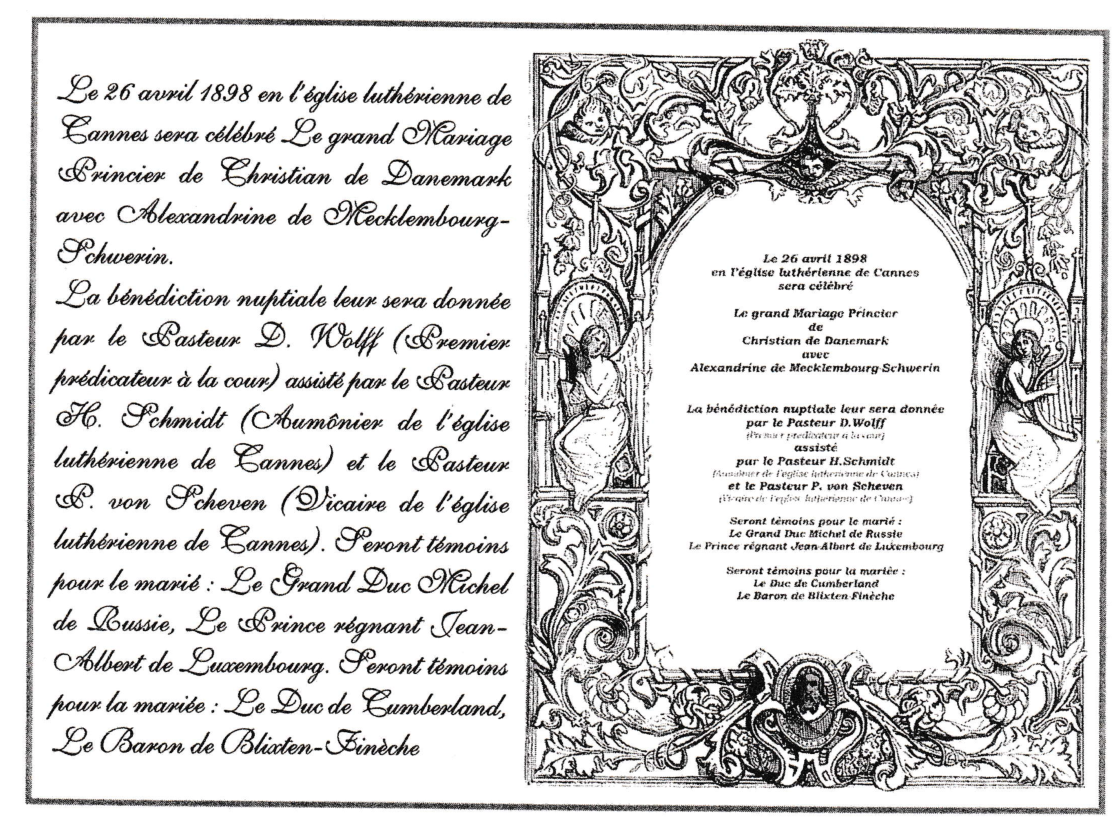 Le 26 avril 1898 en l'église luthérienne de
Cannes sera célébré Le grand Mariage
Princier de Christian de Danemark
avec Alexandrine de Mecklembourg-
Schwerin.
La bénédiction nuptiale leur sera donnée
par le Pasteur D. Wolff (Premier
prédicateur à la cour) assisté par le Pasteur
H. Schmidt (Aumônier de l'église
luthérienne de Cannes) et le Pasteur
P. von Scheven (Vicaire de l'église
luthérienne de Cannes). Seront témoins
pour le marié : Le Grand Duc Michel
de Russie, Le Prince régnant Jean-
Albert de Luxembourg. Seront témoins
pour la mariée : Le Duc de Cumberland,
Le Baron de Blixten-Finèche
Le 26 avril 1898
en l'église luthérienne de Cannes
sera célébré
Le grand Mariage Princier
de
Christian de Danemark
avec
Alexandrine de Mecklembourg-Schwerin
La bénédiction nuptiale leur sera donnée
par le Pasteur D.Wolff
(Premier prédicateur à la cour)
assisté
par le Pasteur H.Schmidt
(Aumônier de l'église luthérienne de Cannes)
et le Pasteur P. von Scheven
(Vicaire de l'église luthérienne de Cannes)
Seront témoins pour le marié :
Le Grand Duc Michel de Russie
Le Prince régnant Jean-Albert de Luxembourg
Seront témoins pour la mariée :
Le Duc de Cumberland
Le Baron de Blixten-Finèche